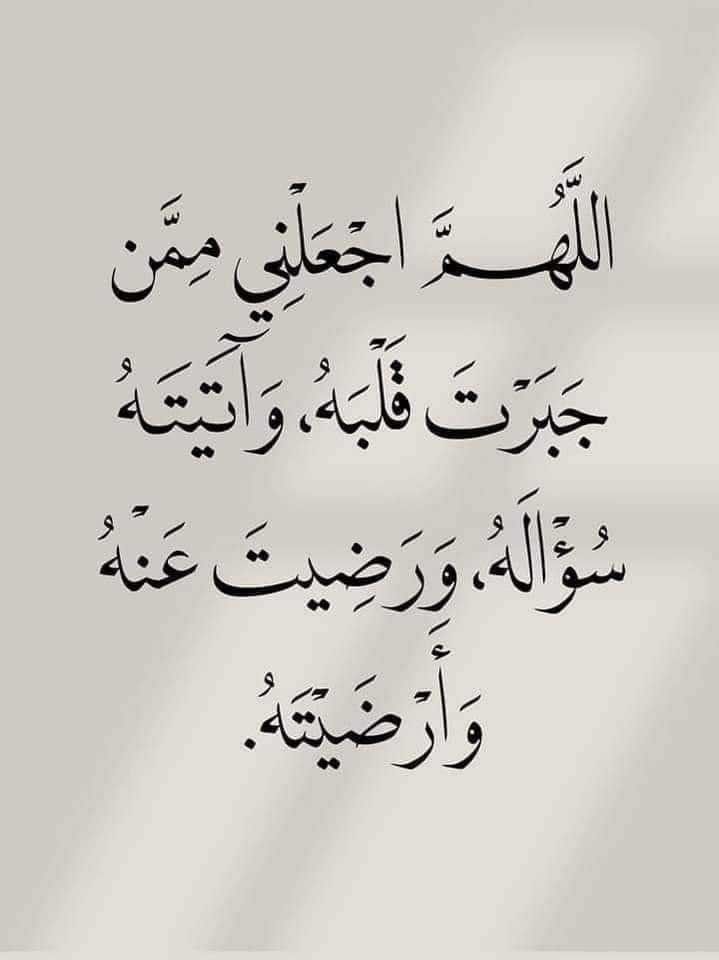 اللَّهُمَّ اجْعَلْنِي مِمَّن
جَبَرْتَ قَلْبَهُ، وَآتَيْتَهُ
سُؤْالَهُ، وَرَضِيتَ عَنْهُ
وَأَرْضَيْتَهُ.